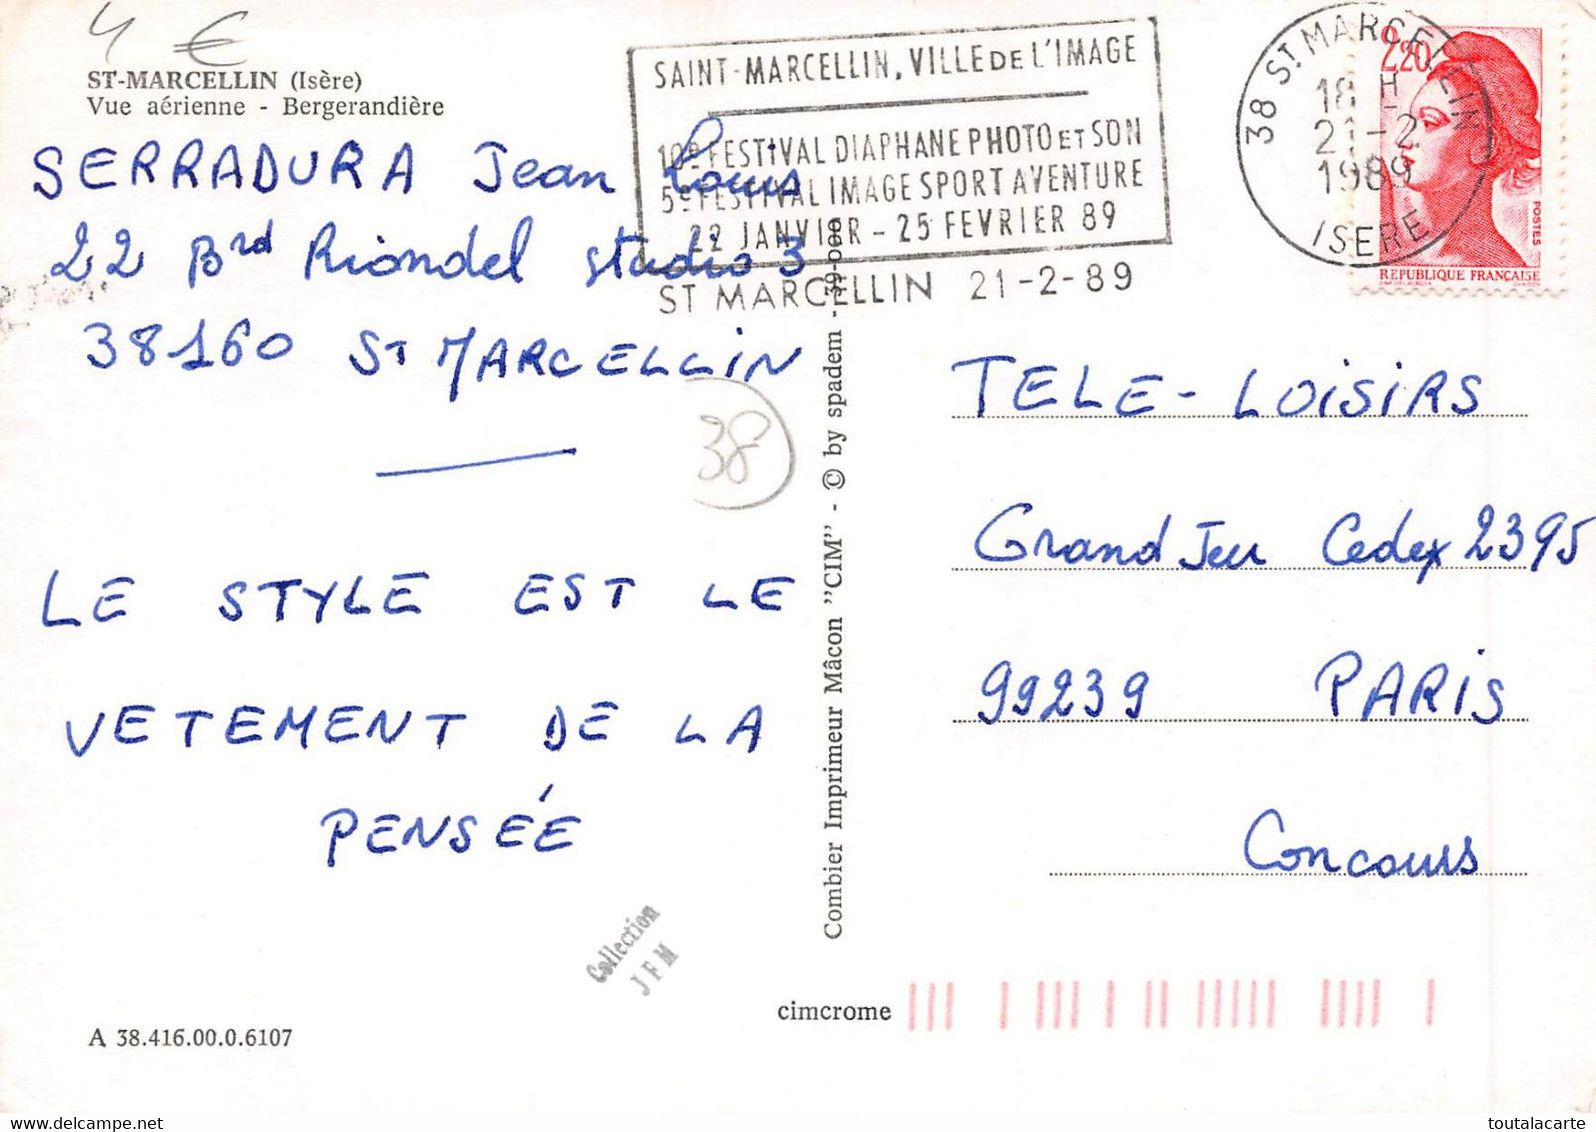 4 €
ST-MARCELLIN (Isère)
Vue aérienne - Bergerandière
SERRADURA Jean Louis
22 Brd Riondel studio 3
38160 ST MARCELLIN
38
LE STYLE EST LE
VETEMENT DE LA
PENSÉE
Collection
JFM
A 38.416.00.0.6107
SAINT-MARCELLIN, VILLE DE L'IMAGE
10e FESTIVAL DIAPHANE PHOTO ET SON
5e FESTIVAL IMAGE SPORT AVENTURE
22 JANVIER - 25 FEVRIER 89
ST MARCELLIN 21-2-89
38 ST. MARCELLIN
18 H
21-2
1989
ISERE
2,20
POSTES
REPUBLIQUE FRANÇAISE
Combier Imprimeur Mâcon "CIM" - © by spadem -
TELE-LOISIRS
Grand Jeu Cedex 2395
99239 PARIS
Concours
cimcrome
delcampe.net
toutalacarte